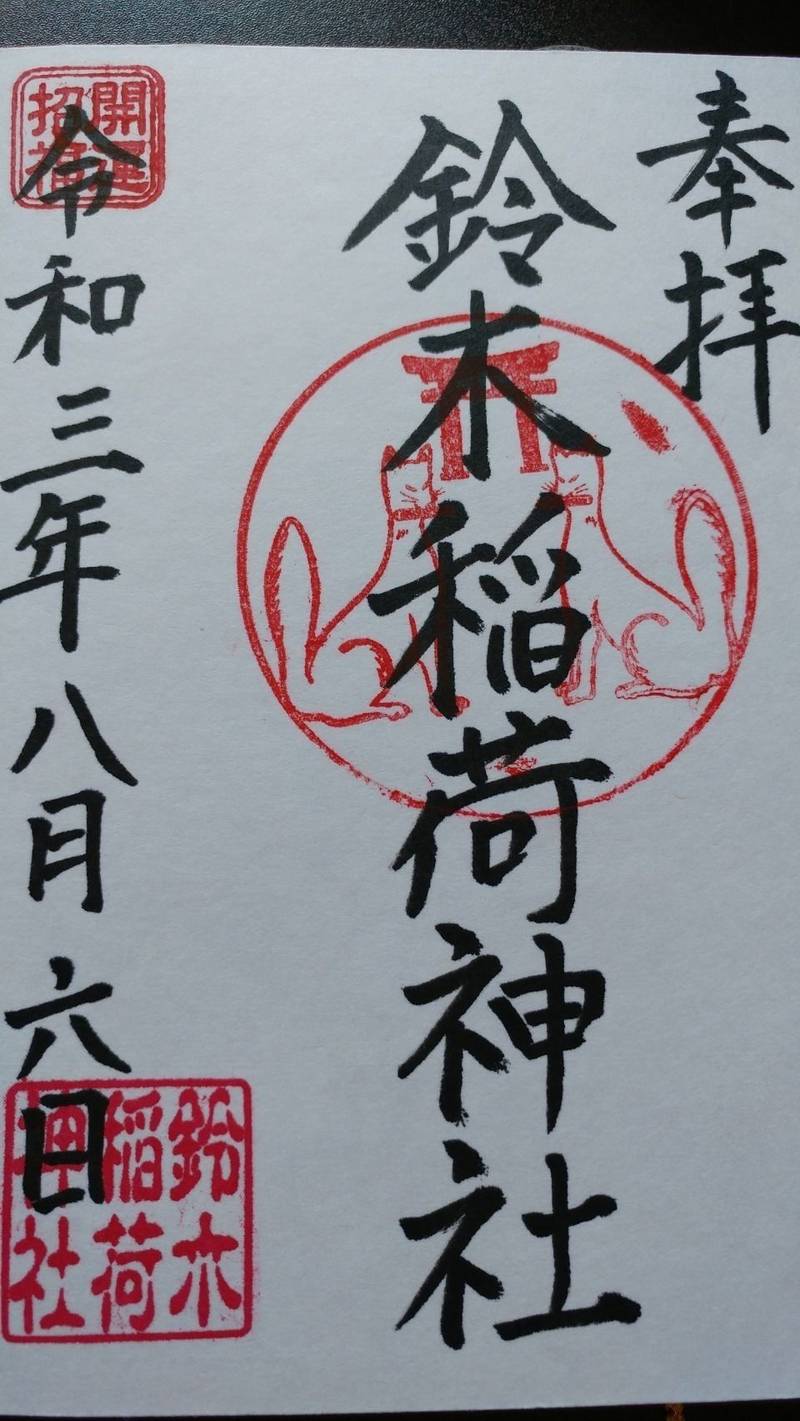 奉拝
鈴木稲荷神社
令和三年八月六日
開運
招福
鈴木
稲荷
神社